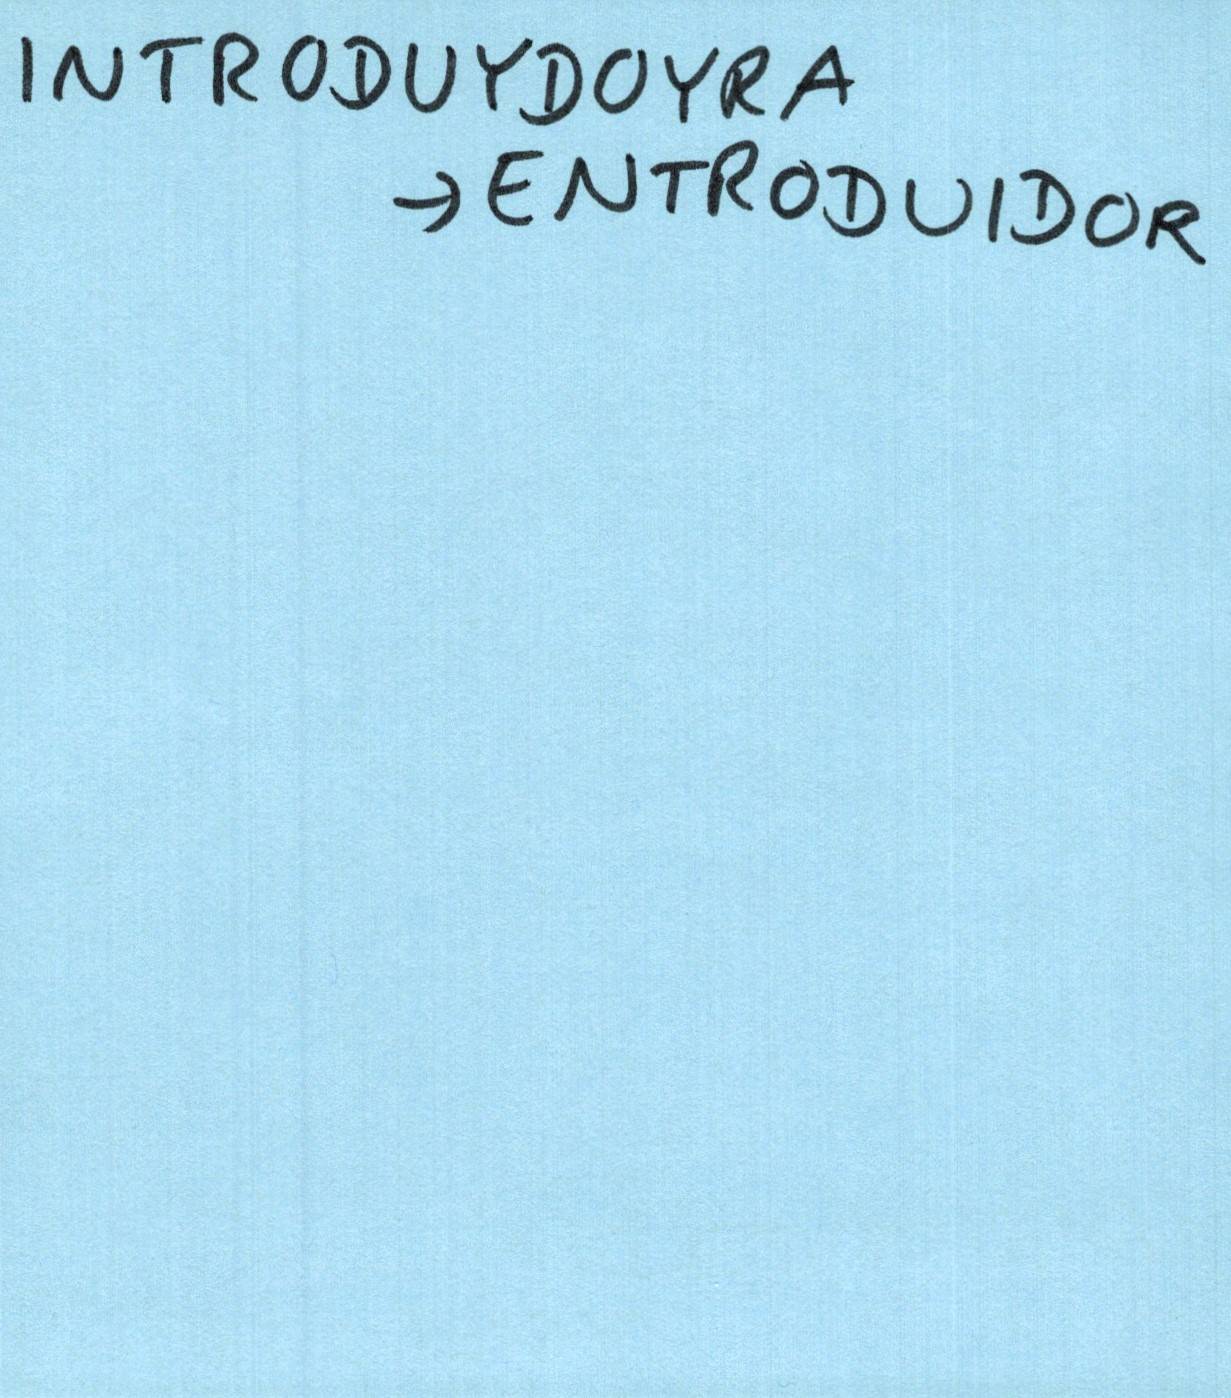 INTRODUYDOYRA
→ ENTRODUIDOR